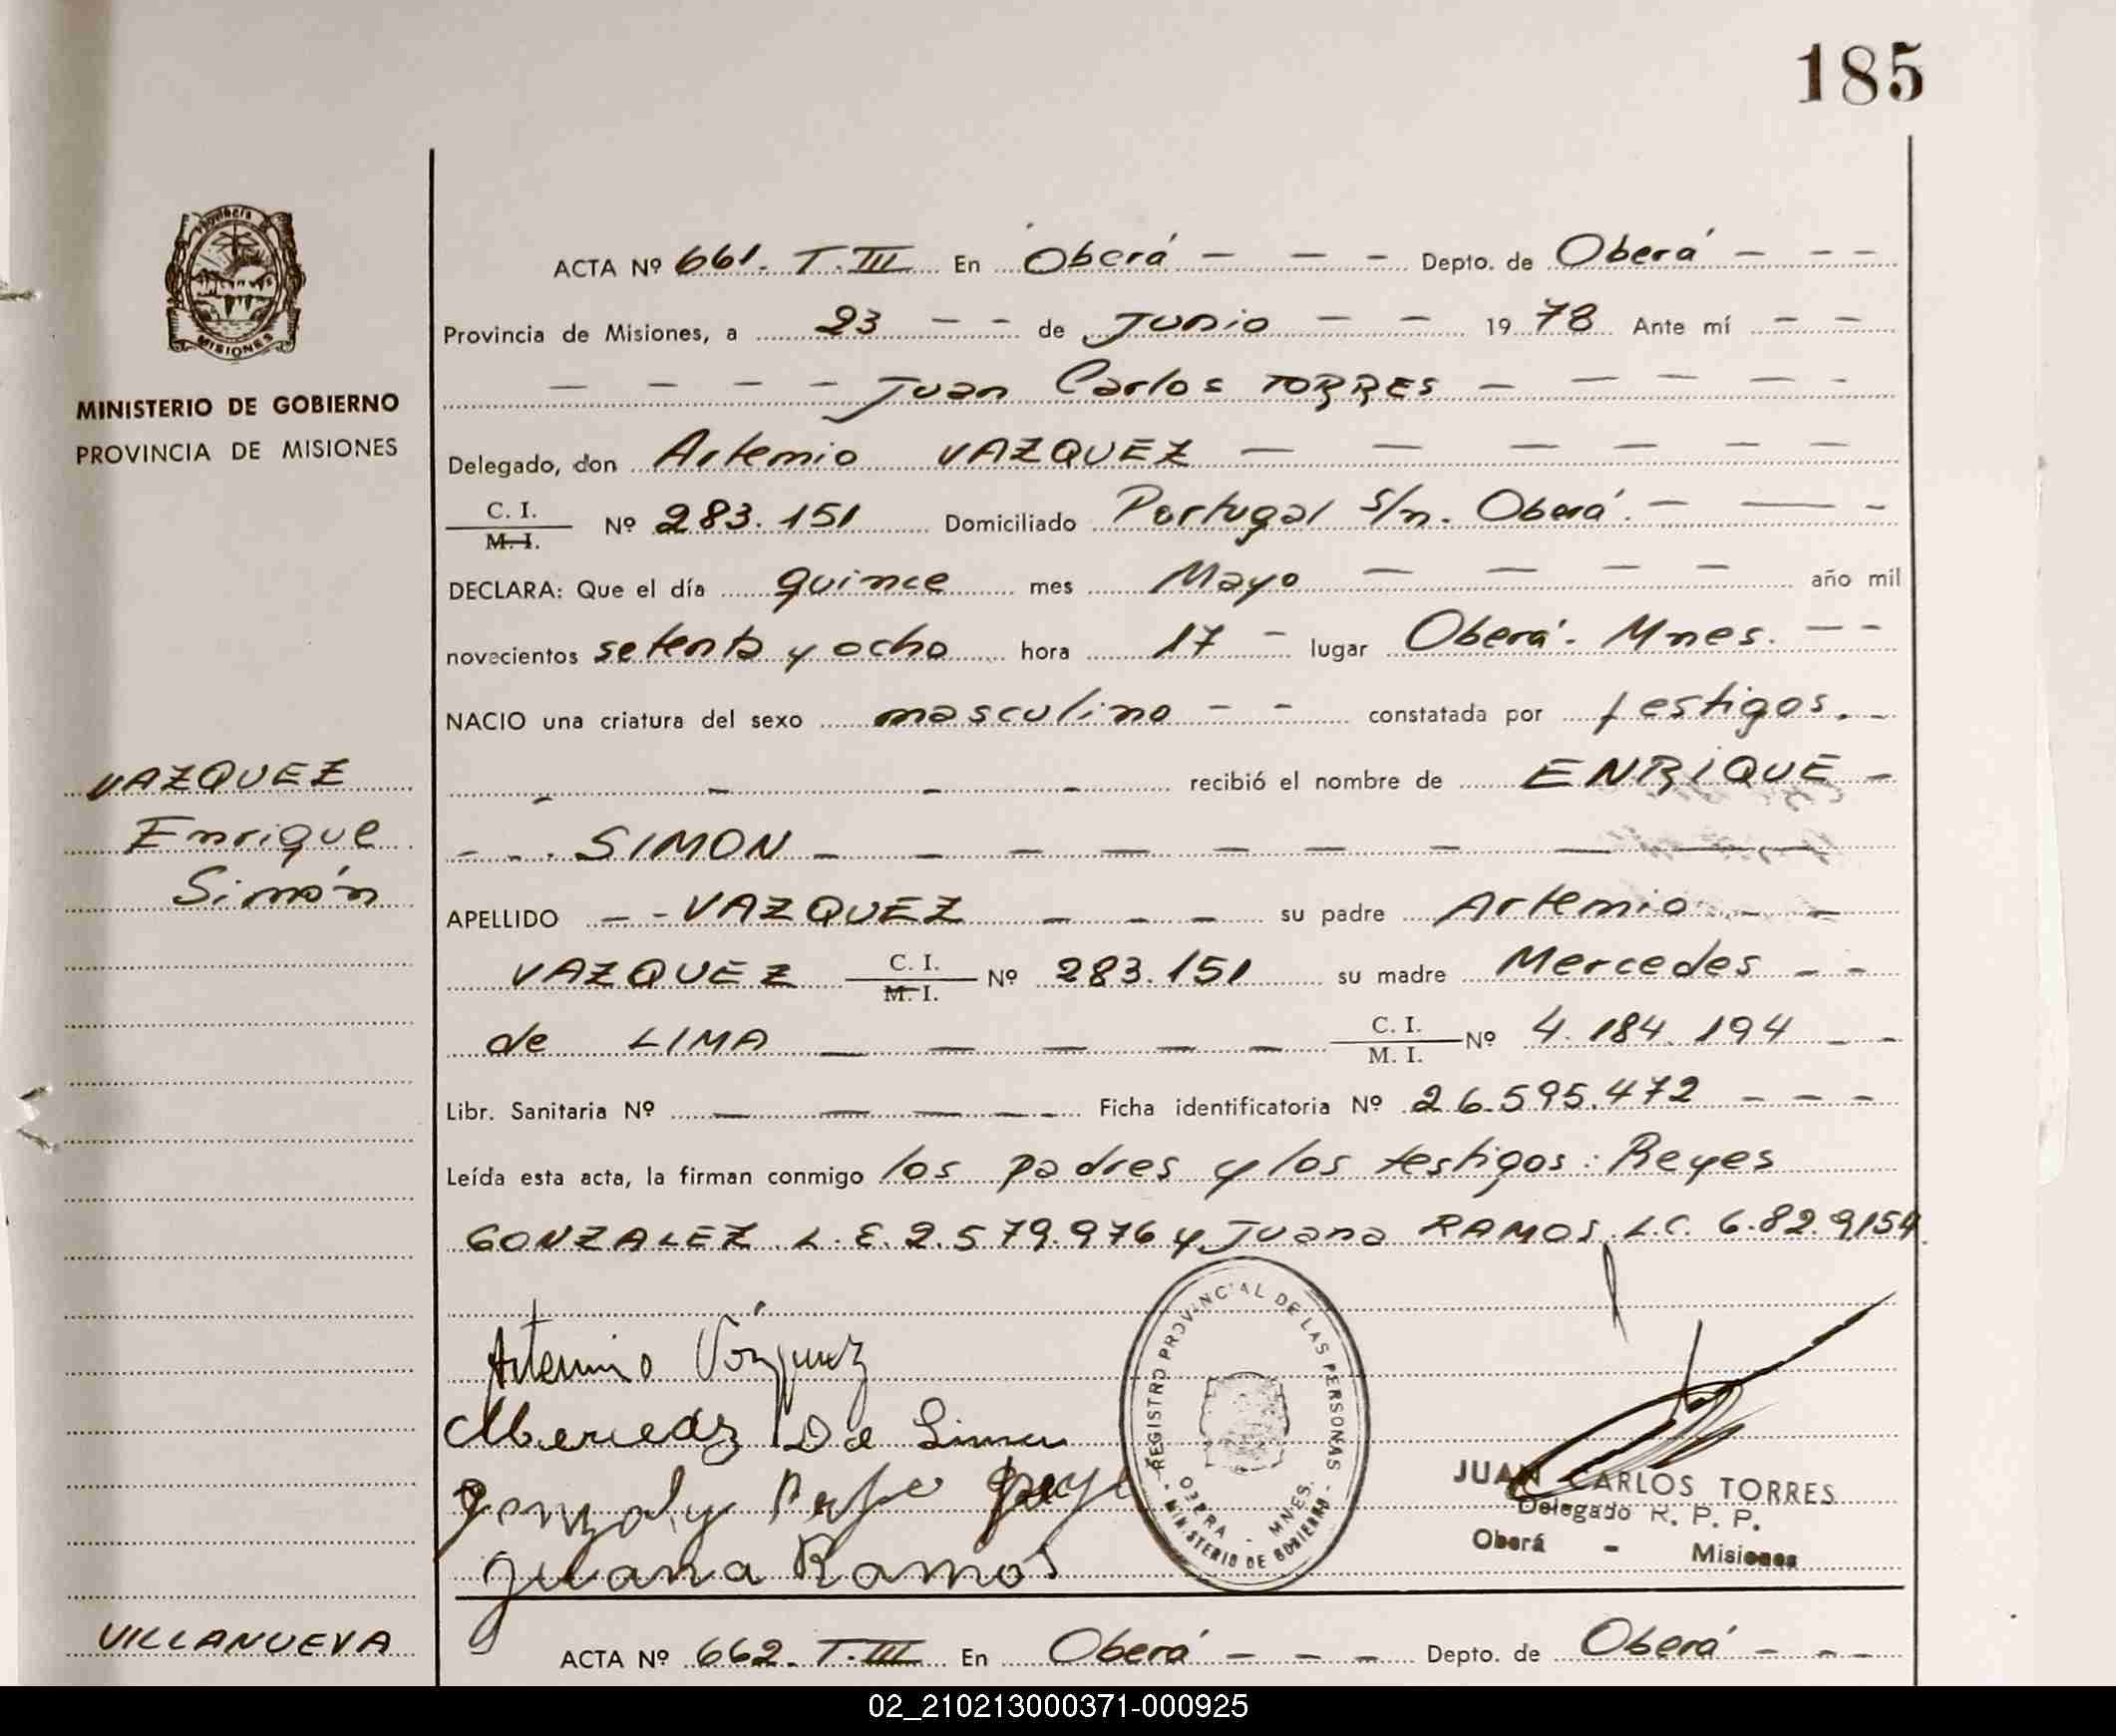 185
ACTA Nº 661. T.III En Oberá - - - Depto. de Oberá - - -
Provincia de Misiones, a 23 - - de Junio - - 1978 Ante mí - -
- - - - Juan Carlos TORRES - - - - -
MINISTERIO DE GOBIERNO
PROVINCIA DE MISIONES
Delegado, don Artemio VAZQUEZ - - - - - -
C. I. / M. I. Nº 283.151 Domiciliado Portugal s/n. Oberá. - - -
DECLARA: Que el día quince mes Mayo - - - - año mil
novecientos setenta y ocho hora 17 - lugar Oberá. Mnes. - -
NACIO una criatura del sexo masculino - - constatada por testigos. -
- - - - recibió el nombre de ENRIQUE -
- - . SIMON - - - - - - - - -
VAZQUEZ
Enrique
Simón
APELLIDO - - VAZQUEZ - - - su padre Artemio - -
VAZQUEZ C. I. / M. I. Nº 283.151 su madre Mercedes - -
de LIMA - - - - - C. I. / M. I. Nº 4.184.194 - -
Libr. Sanitaria Nº - - - - Ficha identificatoria Nº 26.595.472 - - -
Leída esta acta, la firman conmigo los padres y los testigos: Reyes
GONZALEZ L.E. 2.579.976 y Juana RAMOS L.C. 6.82.9154.
Artemio Vázquez
Mercedes De Lima
Juana Ramos
REGISTRO PROVINCIAL DE LAS PERSONAS
OBERA - MNES.
MINISTERIO DE GOBIERNO
JUAN CARLOS TORRES
Delegado R. P. P.
Oberá - Misiones
VILLANUEVA
ACTA Nº 662. T.III En Oberá - - - Depto. de Oberá - - -
02_210213000371-000925
MISIONES